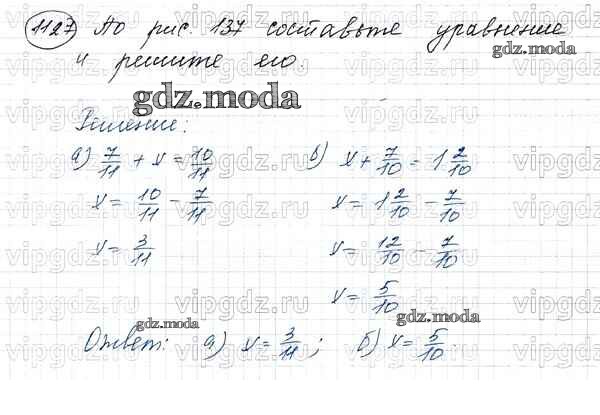 1127 По рис. 137 составьте уравнение
и решите его.
gdz.moda
gdz.moda
Решение:
а) 7/11 + x = 10/11
x = 10/11 - 7/11
x = 3/11
б) x + 7/10 = 1 2/10
x = 1 2/10 - 7/10
x = 12/10 - 7/10
x = 5/10
gdz.moda
gdz.moda
Ответ: а) x = 3/11 ; б) x = 5/10.
vipgdz.ru